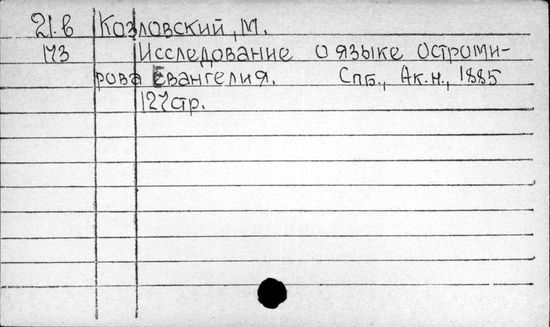 21.в Козловский, М.
173 Исследование о языке Остроми-
рова Евангелия. Спб., Ак.н., 1885
127стр.